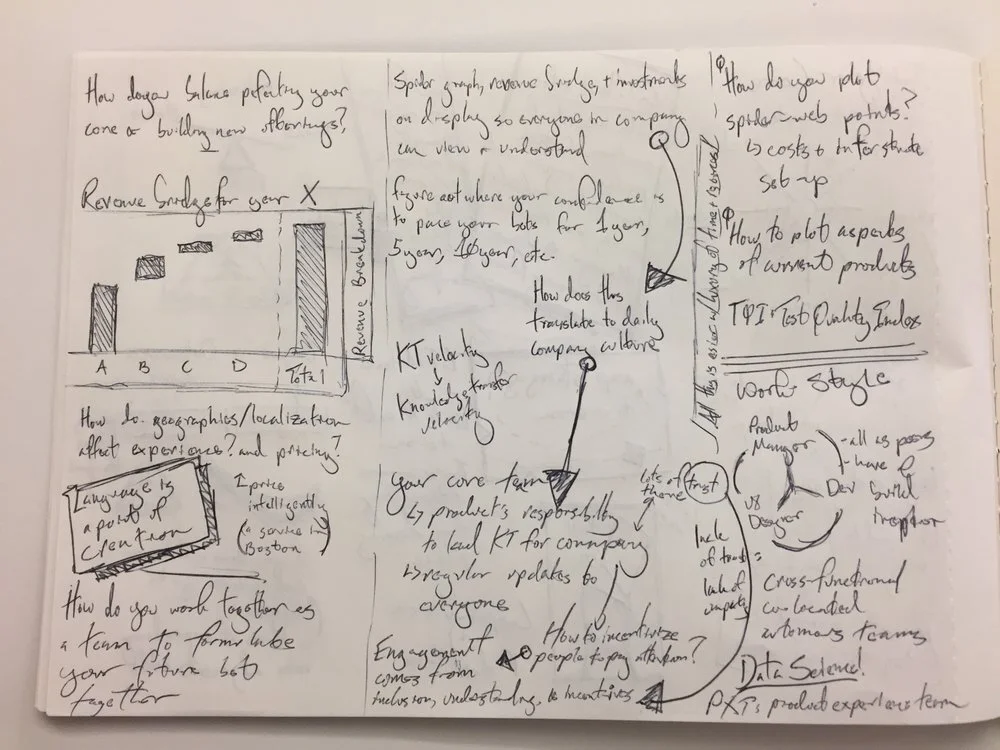 How do you balance perfecting your
core or building new offerings?
Revenue bridge for year X
A B C D Total
Revenue Breakdown
How do geographies/localization
affect experience? and pricing?
Language is
a point of
creation
price
intelligently
(a service in
Boston)
How do you work together as
a team to formulate
your future bet
together
Spider graph, revenue bridge, + investments
on display so everyone in company
can view + understand
figure out where your confidence is
to place your bets for 1 year,
5 year, 10 year, etc.
How does this
translate to daily
company culture
KT velocity
Knowledge transfer
velocity
Your core team
↳ product's responsibility
to lead KT for company
↳ regular updates to
everyone
How to incentivize
people to pay attention?
Engagement
comes from
inclusion, understanding, & incentives
All this is easier w/ luxury of time +
How do you plot
spider-web points?
↳ costs + infrastructure
set-up
How to plot aspects
of current products
TQI: Test Quality Index
Work Style
Product
Manager
Dev
UX
Designer
- all as peers
- have to
build
together
lots of
these
trust
lack
of trust is
lack of
Cross-functional
co-located
autonomous teams
Data Science!
PXT: product experience team